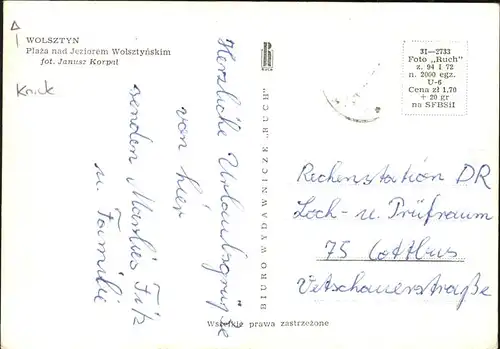 WOLSZTYN
Plaża nad Jeziorem Wolsztyńskim
fot. Janusz Korpal
Knick
Herzliche Urlaubsgrüße
von hier
senden Marlies
u. Familie
BIURO WYDAWNICZE „RUCH"
31—2733
Foto „Ruch"
z. 94 I 72
n. 2000 egz.
U-6
Cena zł 1,70
+ 20 gr
na SFBSiI
Rechenstation DR
Loch- u. Prüfraum
75 Cottbus
Vetschauerstraße
Wszelkie prawa zastrzeżone